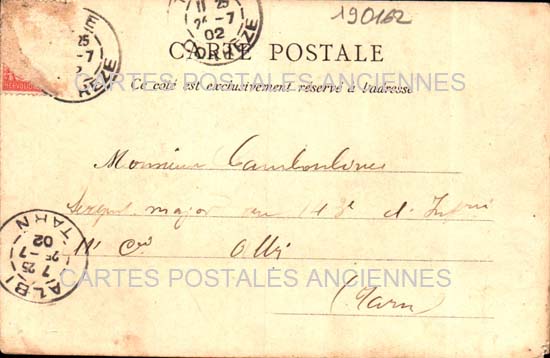 190162
11 25
24 -7
02
CORREZE
25
-7
2
REZE
CARTE POSTALE
CARTES POSTALES ANCIENNES
Ce côté est exclusivement réservé à l'adresse
Monsieur
Sergent major au 143e d'Infrie
11e Cie Albi
(Tarn)
ALBI
TARN
7 25
25 -7
02
CARTES POSTALES ANCIENNES